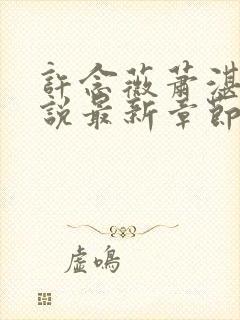 許念薇蕭湛
說最新章節
虛鳴